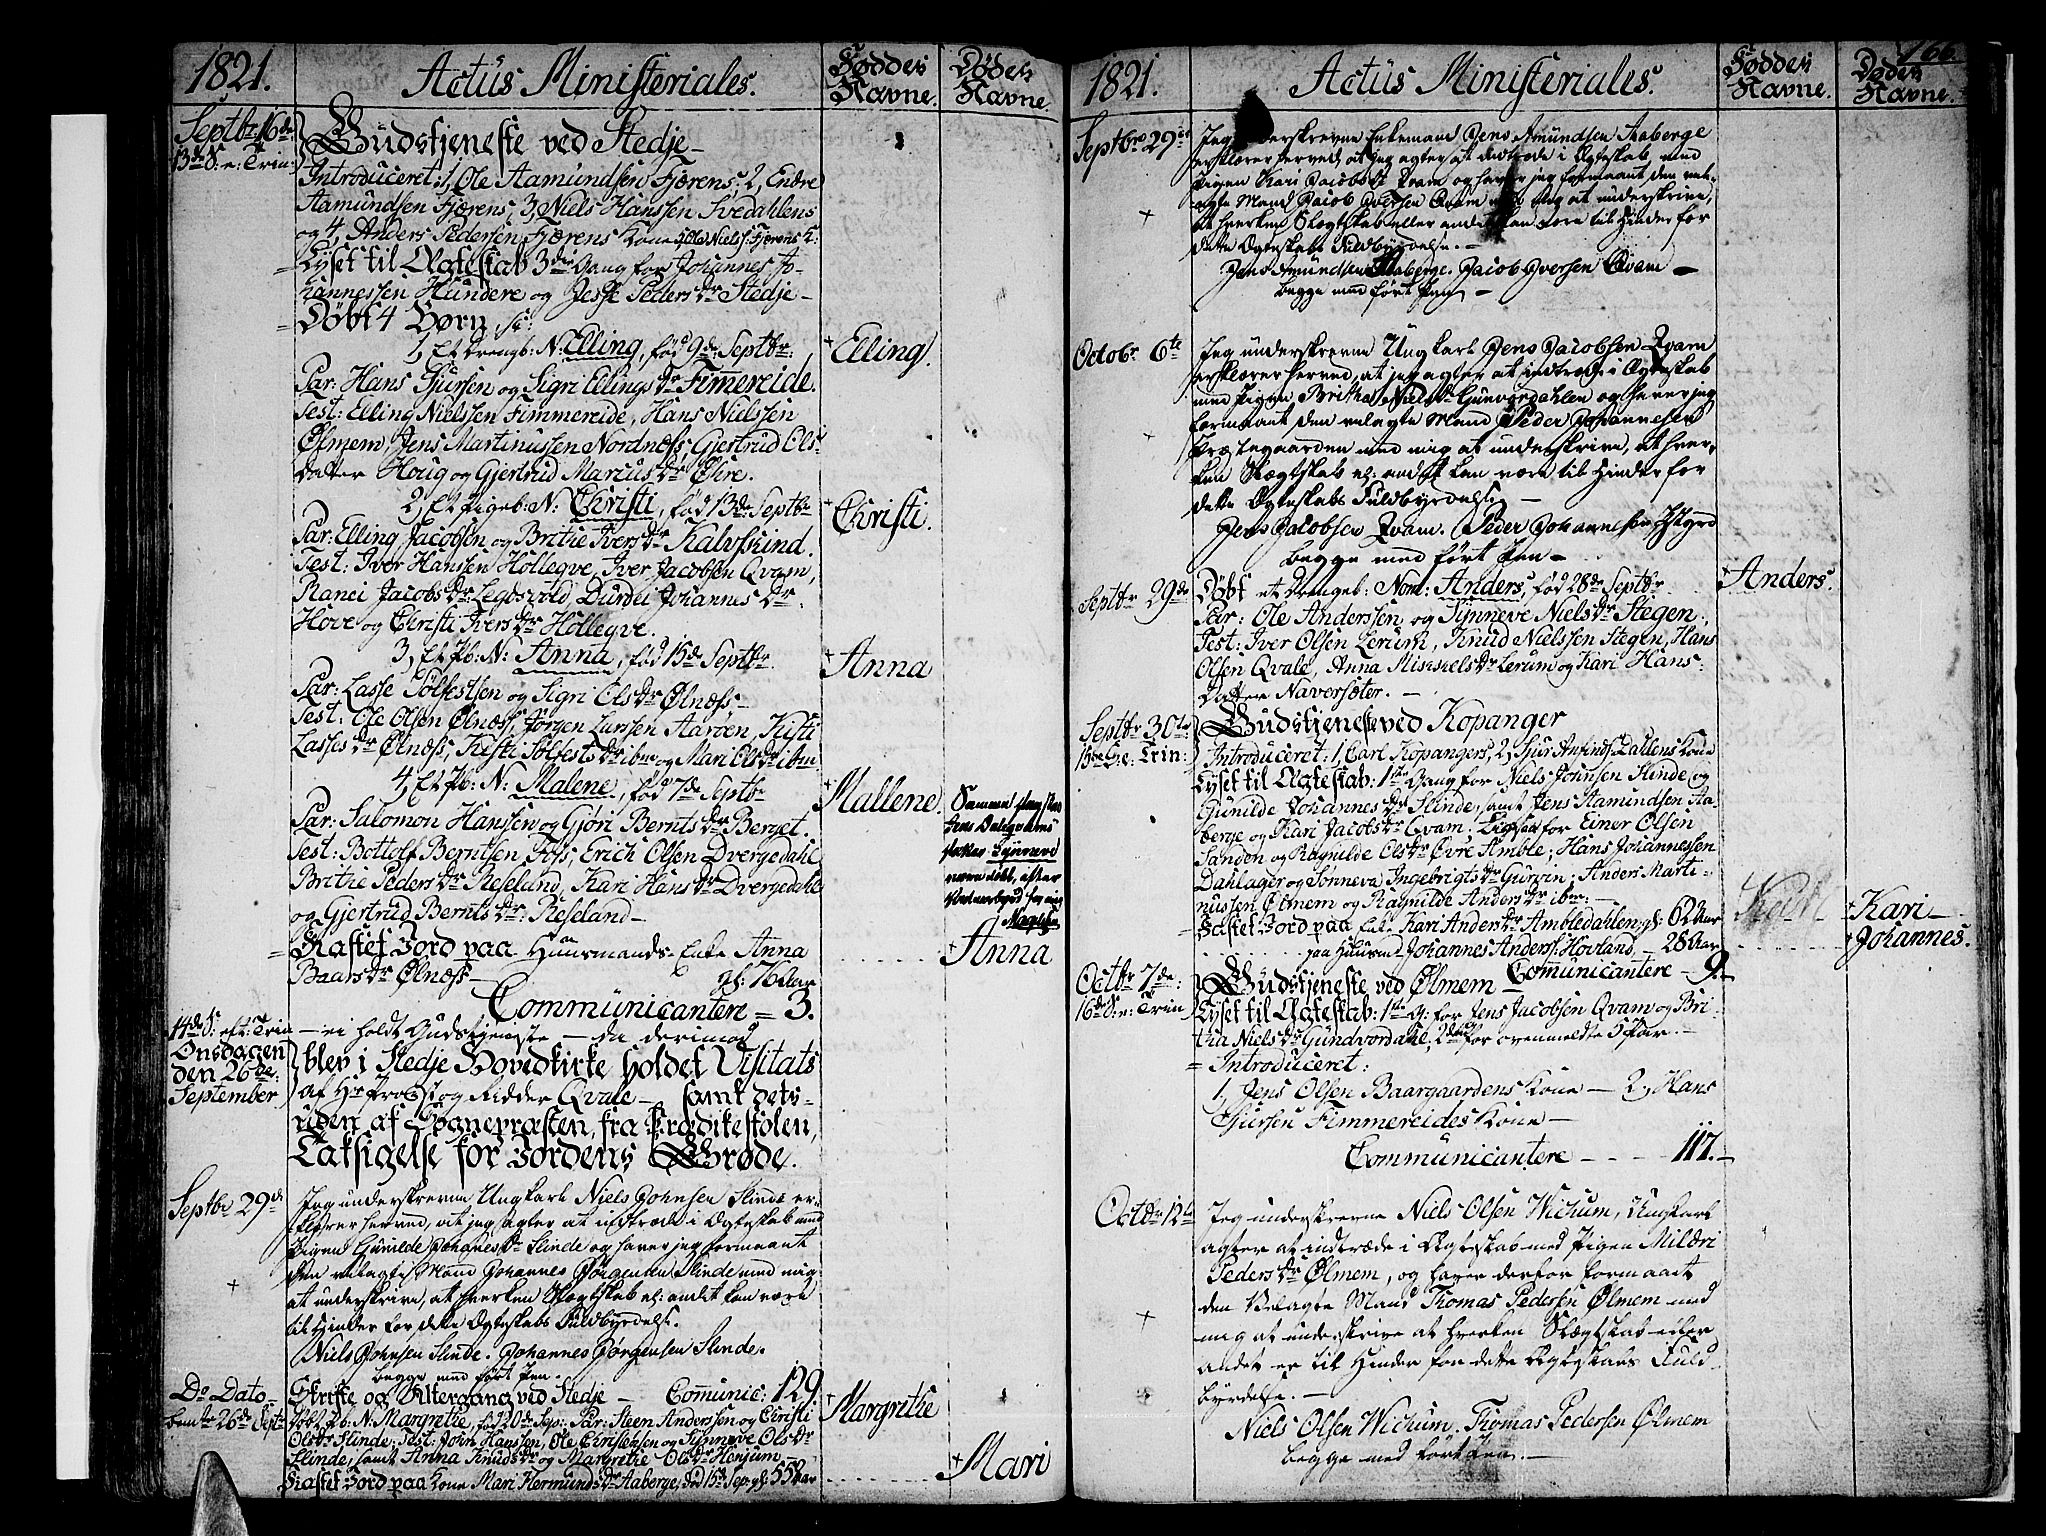 1821.
Actüs Ministeriales.
Föddes Navne.
Dödes Navne.
Septbr: 16de
13de S: e: Trin:
Gudstjeneste ved Stedje
Introduceret: 1, Ole Aamundsen Fjærens, 2, Endre
Aamundsen Fjærens, 3, Niels Hanssen Svedahlens
og 4, Anders Pedersen Fjærens Kone
Lyset til Ægteskab 3de Gang for Johannes Jo-
hannessen Hundere og Peders dr Stedje -
Döbt 4 Börn
1, Et Drengb: N: Elling, fød 9de Septbr:
Elling.
Par: Hans Sjursen og Sigri Ellings dr Fimmereide.
Test: Elling Nielssen Fimmereide, Hans Nielssen
Ølmem, Jens Martinussen Nordnæss, Gjertrud Ols-
datter Houg og Gjertrud Marcus dr Øire.
2, Et Pigeb: N: Christi, fød 13de Septbr
Christi.
Par: Elling Jacobsen og Brithe Ivers dr Kalvskind.
Test: Iver Hansen Hollegve, Iver Jacobsen Qvam,
Ranei Jacobs dr Legdsvold, Durdei Johannes dr
Hove og Christi Ivers dr Hollegve.
3, Et Pb: N: Anna, fød 15de Septbr
Anna
Par: Lasse Sølfestsen og Sigri Ols dr Ølnæss
Test: Ole Olsen Ølnæss, Jørgen Larssen Aarøen, Kisti
Lasses dr Ølnæss, Kisti Sølfests dr ibm og Mari Ols dr ibm
4, Et Pb: N: Malene, fød 7de Septbr
Mallene.
Par: Salomon Hanssen og Gjøri Bernts dr Berget.
Test: Bottolf Berntsen Foss, Erich Olsen Dvergedahl
Brithe Peders dr Reseland, Kari Hans dr Dvergedahl
og Gjertrud Bernts dr: Reseland
Kastet Jord paa Huusmands-Enke Anna
Anna
Baars dr Ølnæss - gl: 76 Aar
Communicantere = 3.
14de S: eft: Trin - ei holdt Gudstjeneste - da derimod
Onsdagen den 26de September
blev i Stedje Hovedkirke holdet Visitats
af Hr Provst og Ridder Qvale - samt dets-
uden af Sognepræsten, fra Prædikestolen,
Taksigelse for Jordens Grøde.
Septbr 29de
Jeg underskrevne Ungkarl Niels Johnsen Slinde er-
klærer herved, at jeg agter at indtræde i Ægteskab med
Pigen Gunilde Johannes Dr Slinde og haver jeg formaaet
den velagte Mand Johannes Jørgensen Slinde med mig
at underskrive, at hverken Slægtskab el: andet kan være
til Hinder for dette Ægteskabs Fuldbyrdelse.
Niels Johnsen Slinde. Johannes Jørgensen Slinde.
begge med ført Pen.
Do Dato
Skrifte og Altergang ved Stedje - Communic: 129
26de Septbr
Døbt Pb: N: Margrethe, fød 20de Sep: Par: Steen Anderssen og Christi
Margrethe
Ols dr Slinde; Test: John Hanssen, Ole Christensen og Synneve Ols dr
Slinde, samt Anna Knuds dr og Margrethe Ols dr Henjum -
Kastet Jord paa Kone Mari Hermunds Dr Aaberge, død 15de Sep: gl: 55 Aar
Mari
166.
1821.
Actüs Ministeriales.
Föddes Navne.
Dödes Navne.
Septbr 29de
Jeg underskrevne Enkemand Jens Amundsen Aaberge
erklærer herved, at jeg agter at indtræde i Ægteskab med
Pigen Kari Jacobsdr Qvam og haver jeg formaaet den vel-
agte Mand Jacob Iversen Qvam med mig at underskrive,
at hverken Slægtskab eller andet kan være til Hinder for
dette Ægteskabs Fuldbyrdelse. -
Jens Amundsen Aaberge. Jacob Iversen Qvam -
begge med ført Pen -
Octobr 6te
Jeg underskrevne Ungkarl Jens Jacobsen Qvam
erklærer herved, at jeg agter at indtræde i Ægteskab
med Pigen Britha Niels Dr Gunvordahlen og haver jeg
formaaet den velagte Mand Peder Johannesen
Præstegaarden med mig at underskrive, at hver-
ken Slægtskab el: andet kan være til Hinder for
dette Ægteskabs Fuldbyrdelse -
Jens Jacobsen Qvam. Peder Johannesen
begge med ført Pen -
Septbr 29de
Döbt et Drengeb: Nom: Anders, fød 28de Septbr
Anders
Par: Ole Anderssen og Synneve Niels dr Stegen,
Test: Iver Olsen Lerum, Knud Nielssen Stegen, Hans
Olsen Qvale, Anna Mikkels dr Lerum og Kari Hans-
Datter Naversæter. -
Septbr 30te
15de S: e: Trin:
Gudstjeneste ved Kopanger
Introduceret: 1, Carl Kopangers, 2, Sjur Anfinds Dahlens Kone
Lyset til Ægteskab: 1ste Gang for Niels Johnsen Slinde og
Gunilde Johannes dr Slinde, samt Jens Aamundsen Aa-
berge og Kari Jacobs dr Qvam. Ligesaa for Einer Olsen
Sanden og Ragnilde Ols dr Øvre Amble; Hans Johannessen
Dahlager og Sønneva Ingebrigts dr Gurvin; Anders Marti-
nussen Ølmem og Ragnilde Anders dr ibm: -
Kastet Jord paa Enke Kari Anders dr Ambledahlen, gl: 62 Aar
Kari
paa Huusm: Johannes Anders: Hovland - 28 Aar
Johannes.
Communicantere - 9.
Octbr 7de:
16de S: e: Trin
Gudstjeneste ved Ølmem
Lyset til Ægteskab: 1ste G: for Jens Jacobsen Qvam og Bri-
tha Niels dr Gundvordahl, 2den for ovenmeldte 5 Par. -
= Introduceret:
1, Jens Olsen Baargaardens Kone - 2, Hans
Sjursen Fimmereides Kone -
Communicantere - - - - 117.
Octbr 12te
Jeg underskrevne Niels Olsen Wichum, Ungkarl
agter at indtræde i Ægteskab med Pigen Mildri
Peders dr Ølmem, og haver derfor formaaet
den Velagte Mand Thomas Pedersen Ølmem med
mig at underskrive at hverken Slægtskab eller
andet er til Hinder for dette Ægteskabs Fuld-
byrdelse. -
Niels Olsen Wichum, Thomas Pedersen Ølmem
begge med ført Pen. -